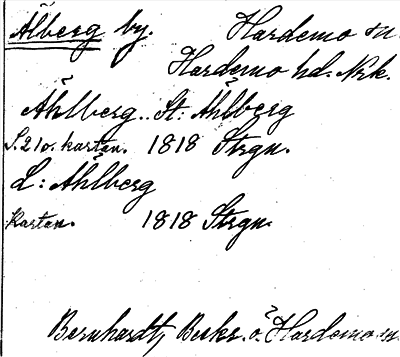 Ålberg by. Hardemo sn.
Hardemo hd. Nrk.
Åhlberg.. St: Åhlberg
S. 210. kartan. 1818 Strgn.
L: Åhlberg
Kartan. 1818 Strgn.
Bernhardt, Beskr. ö. Hardemo sn.